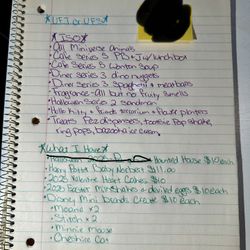 *UFT or UFS*
*ISO*
• All Miniverse Animals
• Cafe Series 3 PB+J w/lunchbox
• Cafe Series 3 Wonton Soup
• Diner Series 3 dino nuggets
• Diner Series 3 Spaghetti + meatballs
• Fragrances - All but no fruity smells
• Halloween Series 2 sandman
• Hello Kitty + Friends terrarium + flower planters
• Treats Pez dispensers, tootsie pop shake,
ring pops, bazooka ice cream
*What I Have*
• Halloween 2025 Haunted House $15 each
• Harry Potter Baby Norbert $11.00
• 2025 Valentine Heart Cakes $10
• 2025 Easter Milkshakes + deviled eggs $10 each
• Disney Mini Brands Create $10 each
• Moana x2
• Stitch x2
• Minnie Mouse
• Cheshire Cat